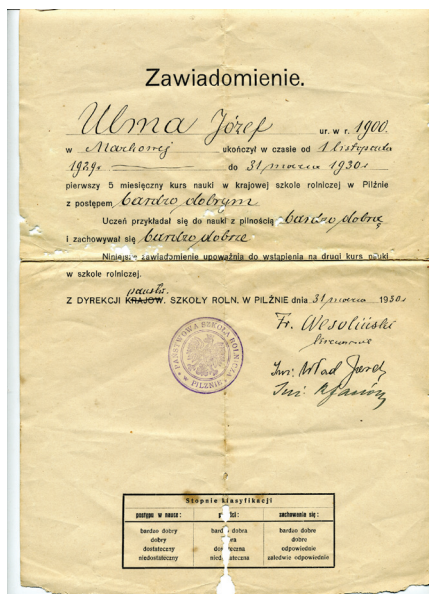 Zawiadomienie.
Ulma Józef ur. w r. 1900.
w Markowej ukończył w czasie od 1 listopada
1929r. do 31 marca 1930r
pierwszy 5 miesięczny kurs nauki w krajowej szkole rolniczej w Pilźnie
z postępem bardzo dobrym
Uczeń przykładał się do nauki z pilnością bardzo dobrą
i zachowywał się bardzo dobrze
Niniejsze zawiadomienie upoważnia do wstąpienia na drugi kurs nauki
w szkole rolniczej.
państw.
Z DYREKCJI KRAJOW. SZKOŁY ROLN. W PILŹNIE dnia 31 marca 1930r
PAŃSTWOWA SZKOŁA ROLNICZA W PILZNIE
Fr.
Inż. Wład
Inż.
Stopnie klasyfikacji
postępu w nauce: zachowania się:
bardzo dobry bardzo dobra bardzo dobre
dobry dobre
dostateczny odpowiednie
niedostateczny zaledwie odpowiednie